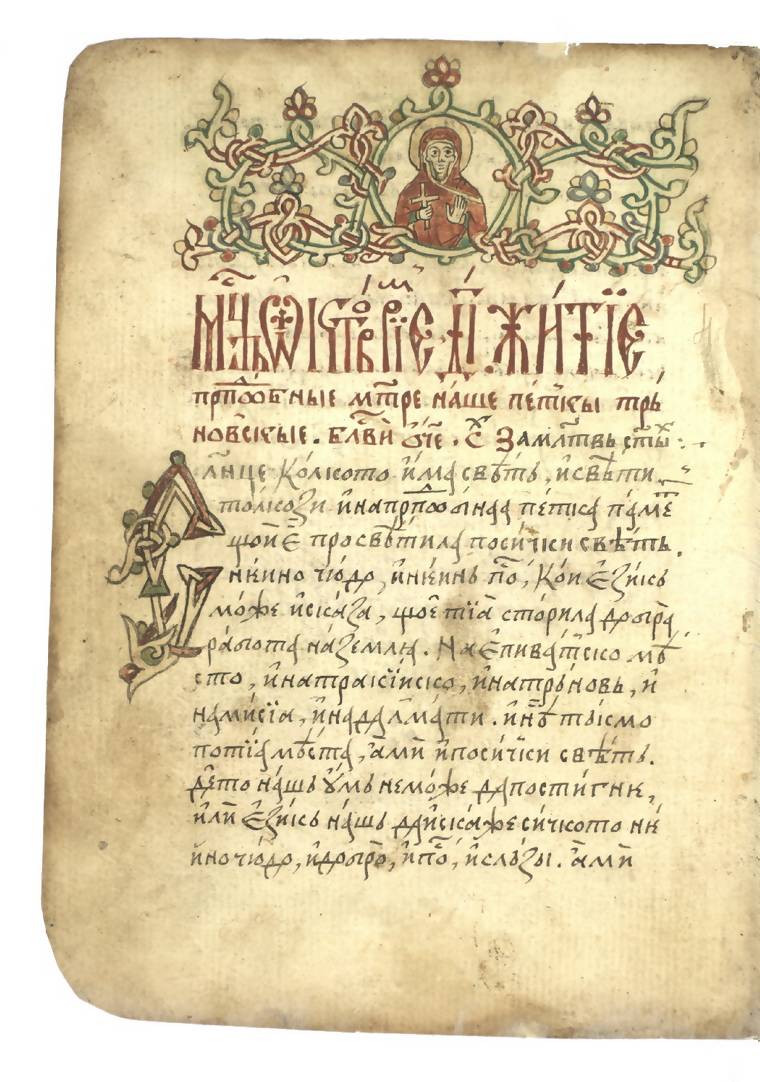 Мцⷭ҇ъ ѡ҆ктоврїе д҃і. Жи́тїе
прпⷣобные мт҃ре на́ше пе́ткы трь
новⷭ҇кые. блⷭ҇ви ѻ҆ч҃е. Сⷯ За мл҃твь ст҃ы
Слн҃це ко́лкото и҆́ма свѣ́ть, и҆свѣ́ти
то́лкози и҆ напрпⷣобнаа пе́тка па́меⷮ
щой е҆ просвѣти́ла поси́чки свѣ́ть.
нѣ́кино чю́до, и҆нѣ́кинь поⷭ҇, Кои е҆зи́кь
мо́же и҆ска́за, що е҆ тїа̀ стори́ла добра
рабо́та на землѧ. На е҆пиваⷮско мѣ́
сто, и҆натраки́иско, и҆натрьновь, и҆
нами́сїа, и҆надалма́ти. и҆нѣ тькмо
потїа мѣ́ста, а҆мѝ и҆поси́чки свѣ́ть.
де́то на́шь ѹ҆мь немо́же дапости́гне,
и҆лѝ е҆зи́кь на́шь даи҆ска́же си́чкото нѣ
кино чю́до, и҆добро, и҆поⷭ҇, и҆слъ́зы. а҆мѝ